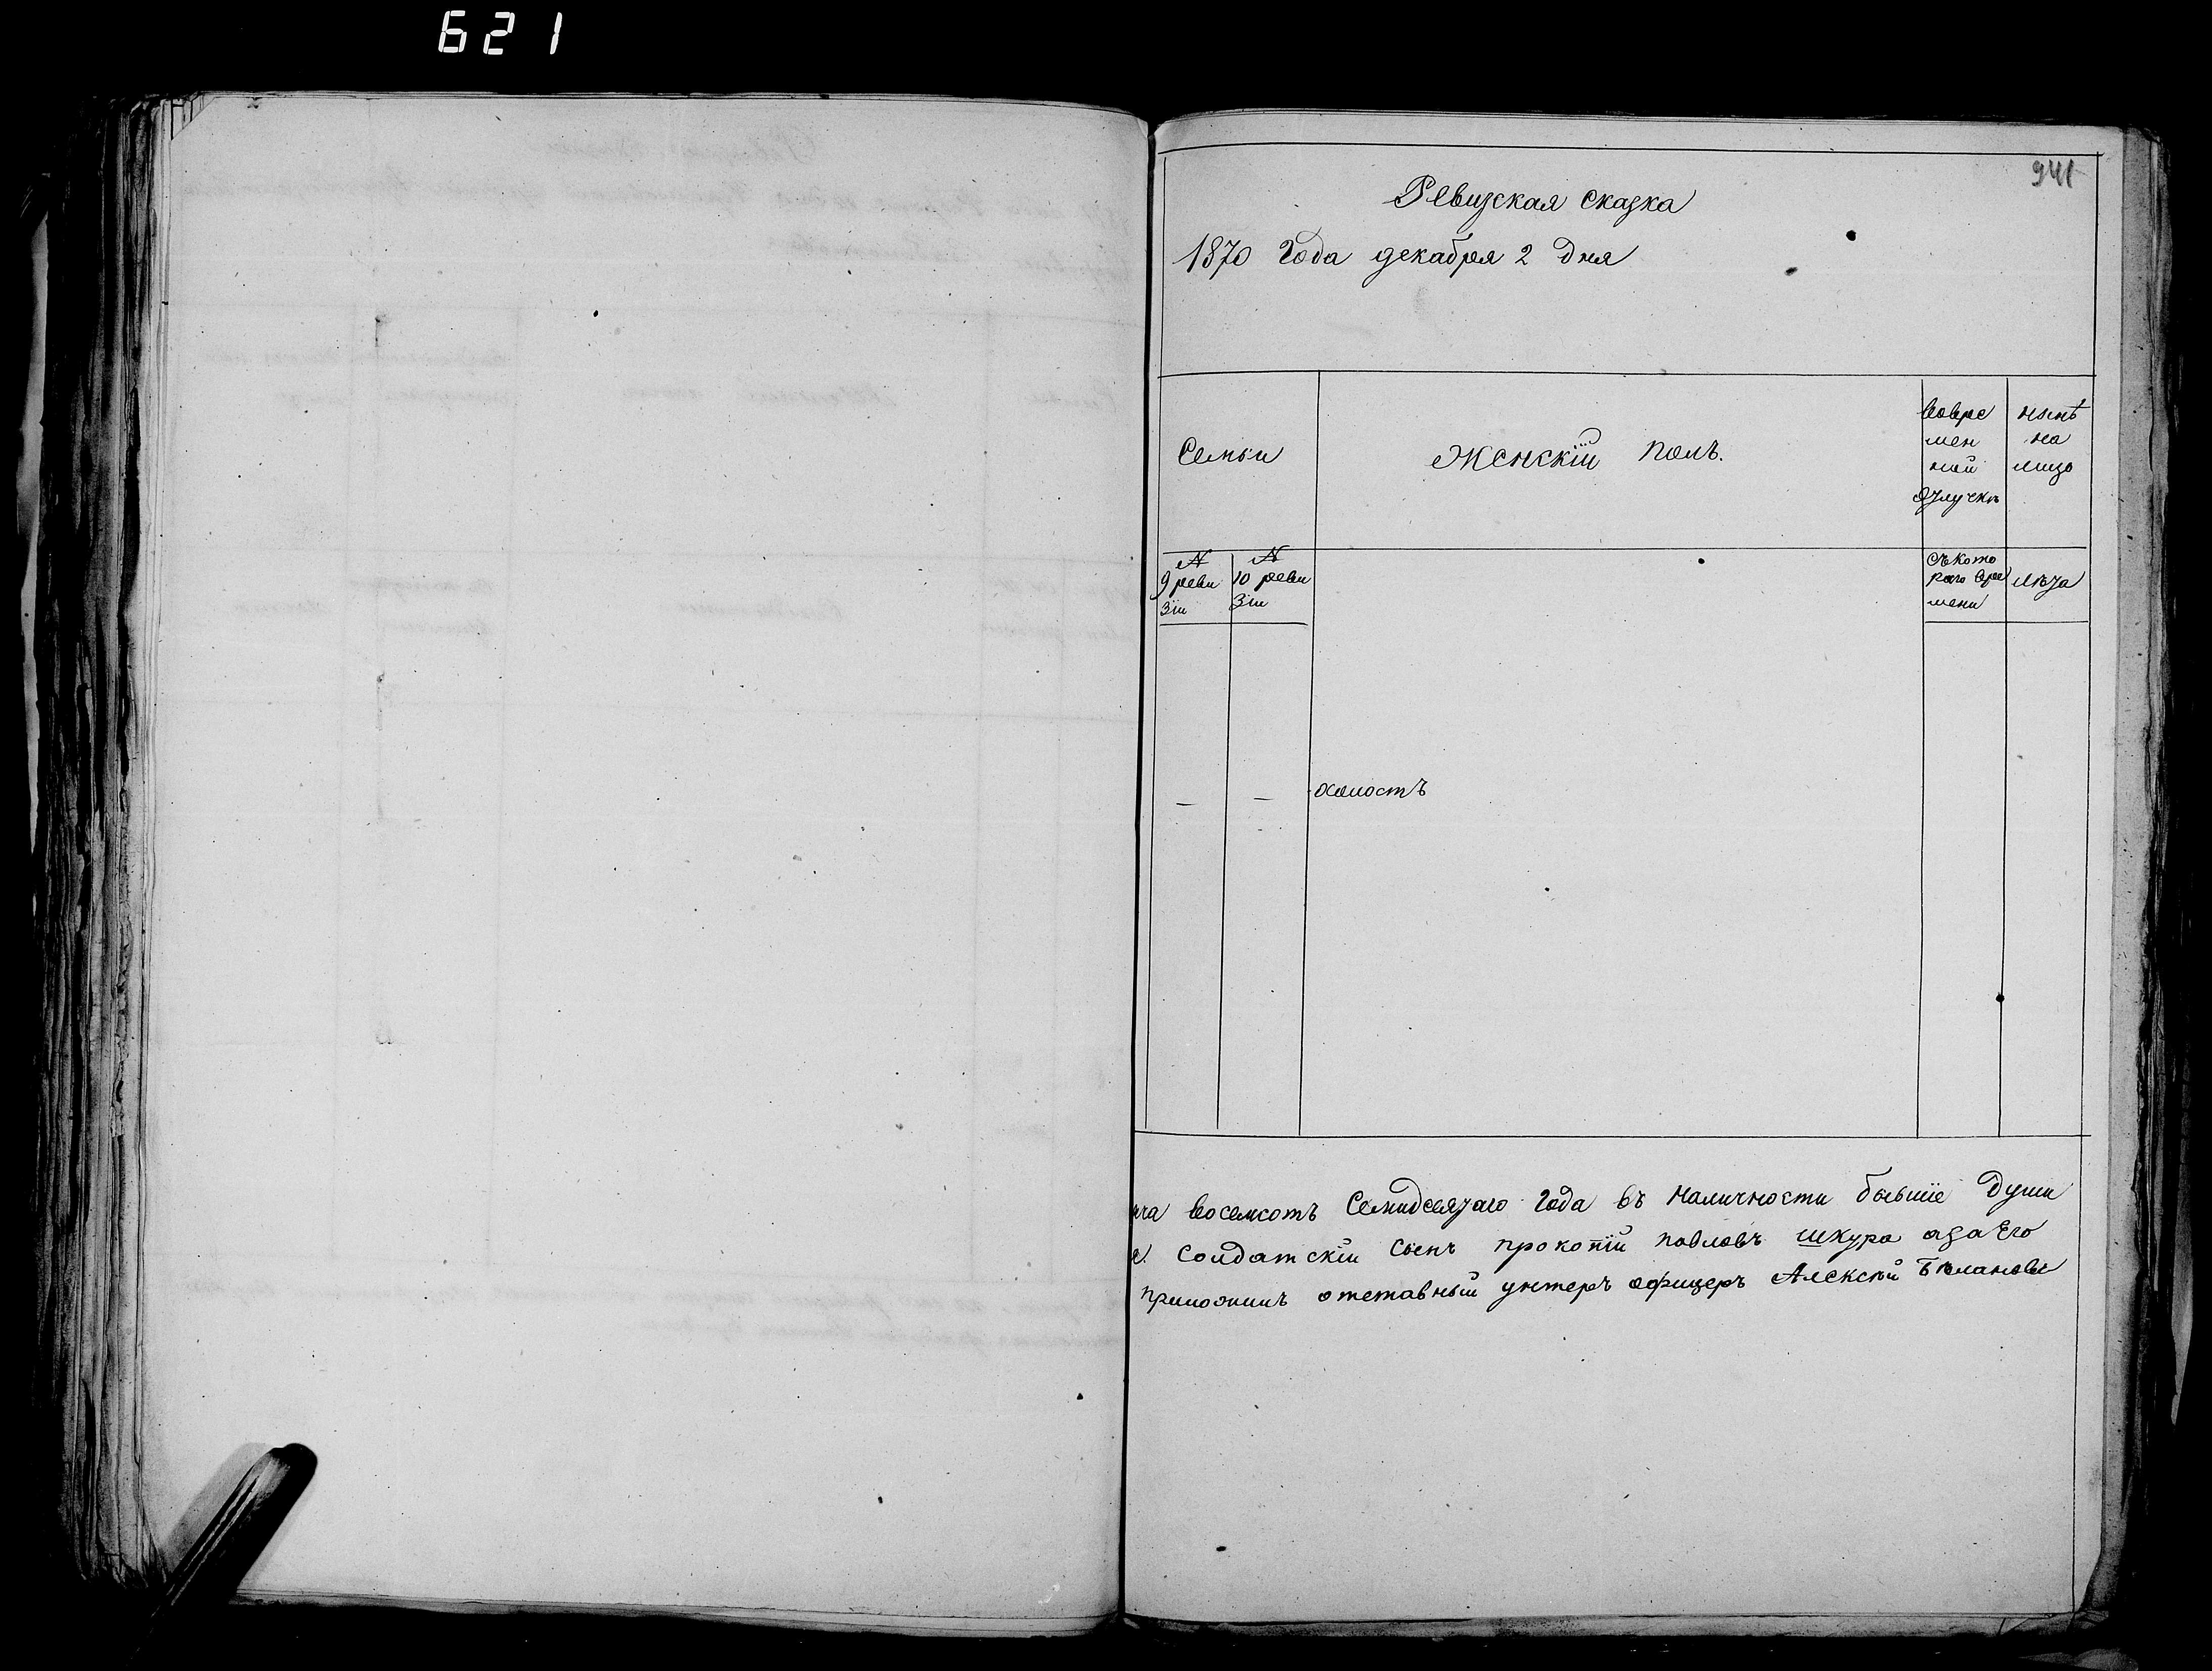 621
941
Ревизская сказка
1870 Года декабря 2 Дня
Семьи
Женскій полъ.
вовре
мен
ной
отлучкѣ
нынѣ
на
лицо
N
9 реви
зіи
N
10 реви
зіи
съ кото
раго вре
мени
лѣта
—
—
холостъ
восемсотъ Семидесятаго Года въ наличности бывшіе Души
Солдатскій Сынъ прокопій павловъ шкура аза Его
приложилъ отставный унтеръ офицеръ Алексѣй